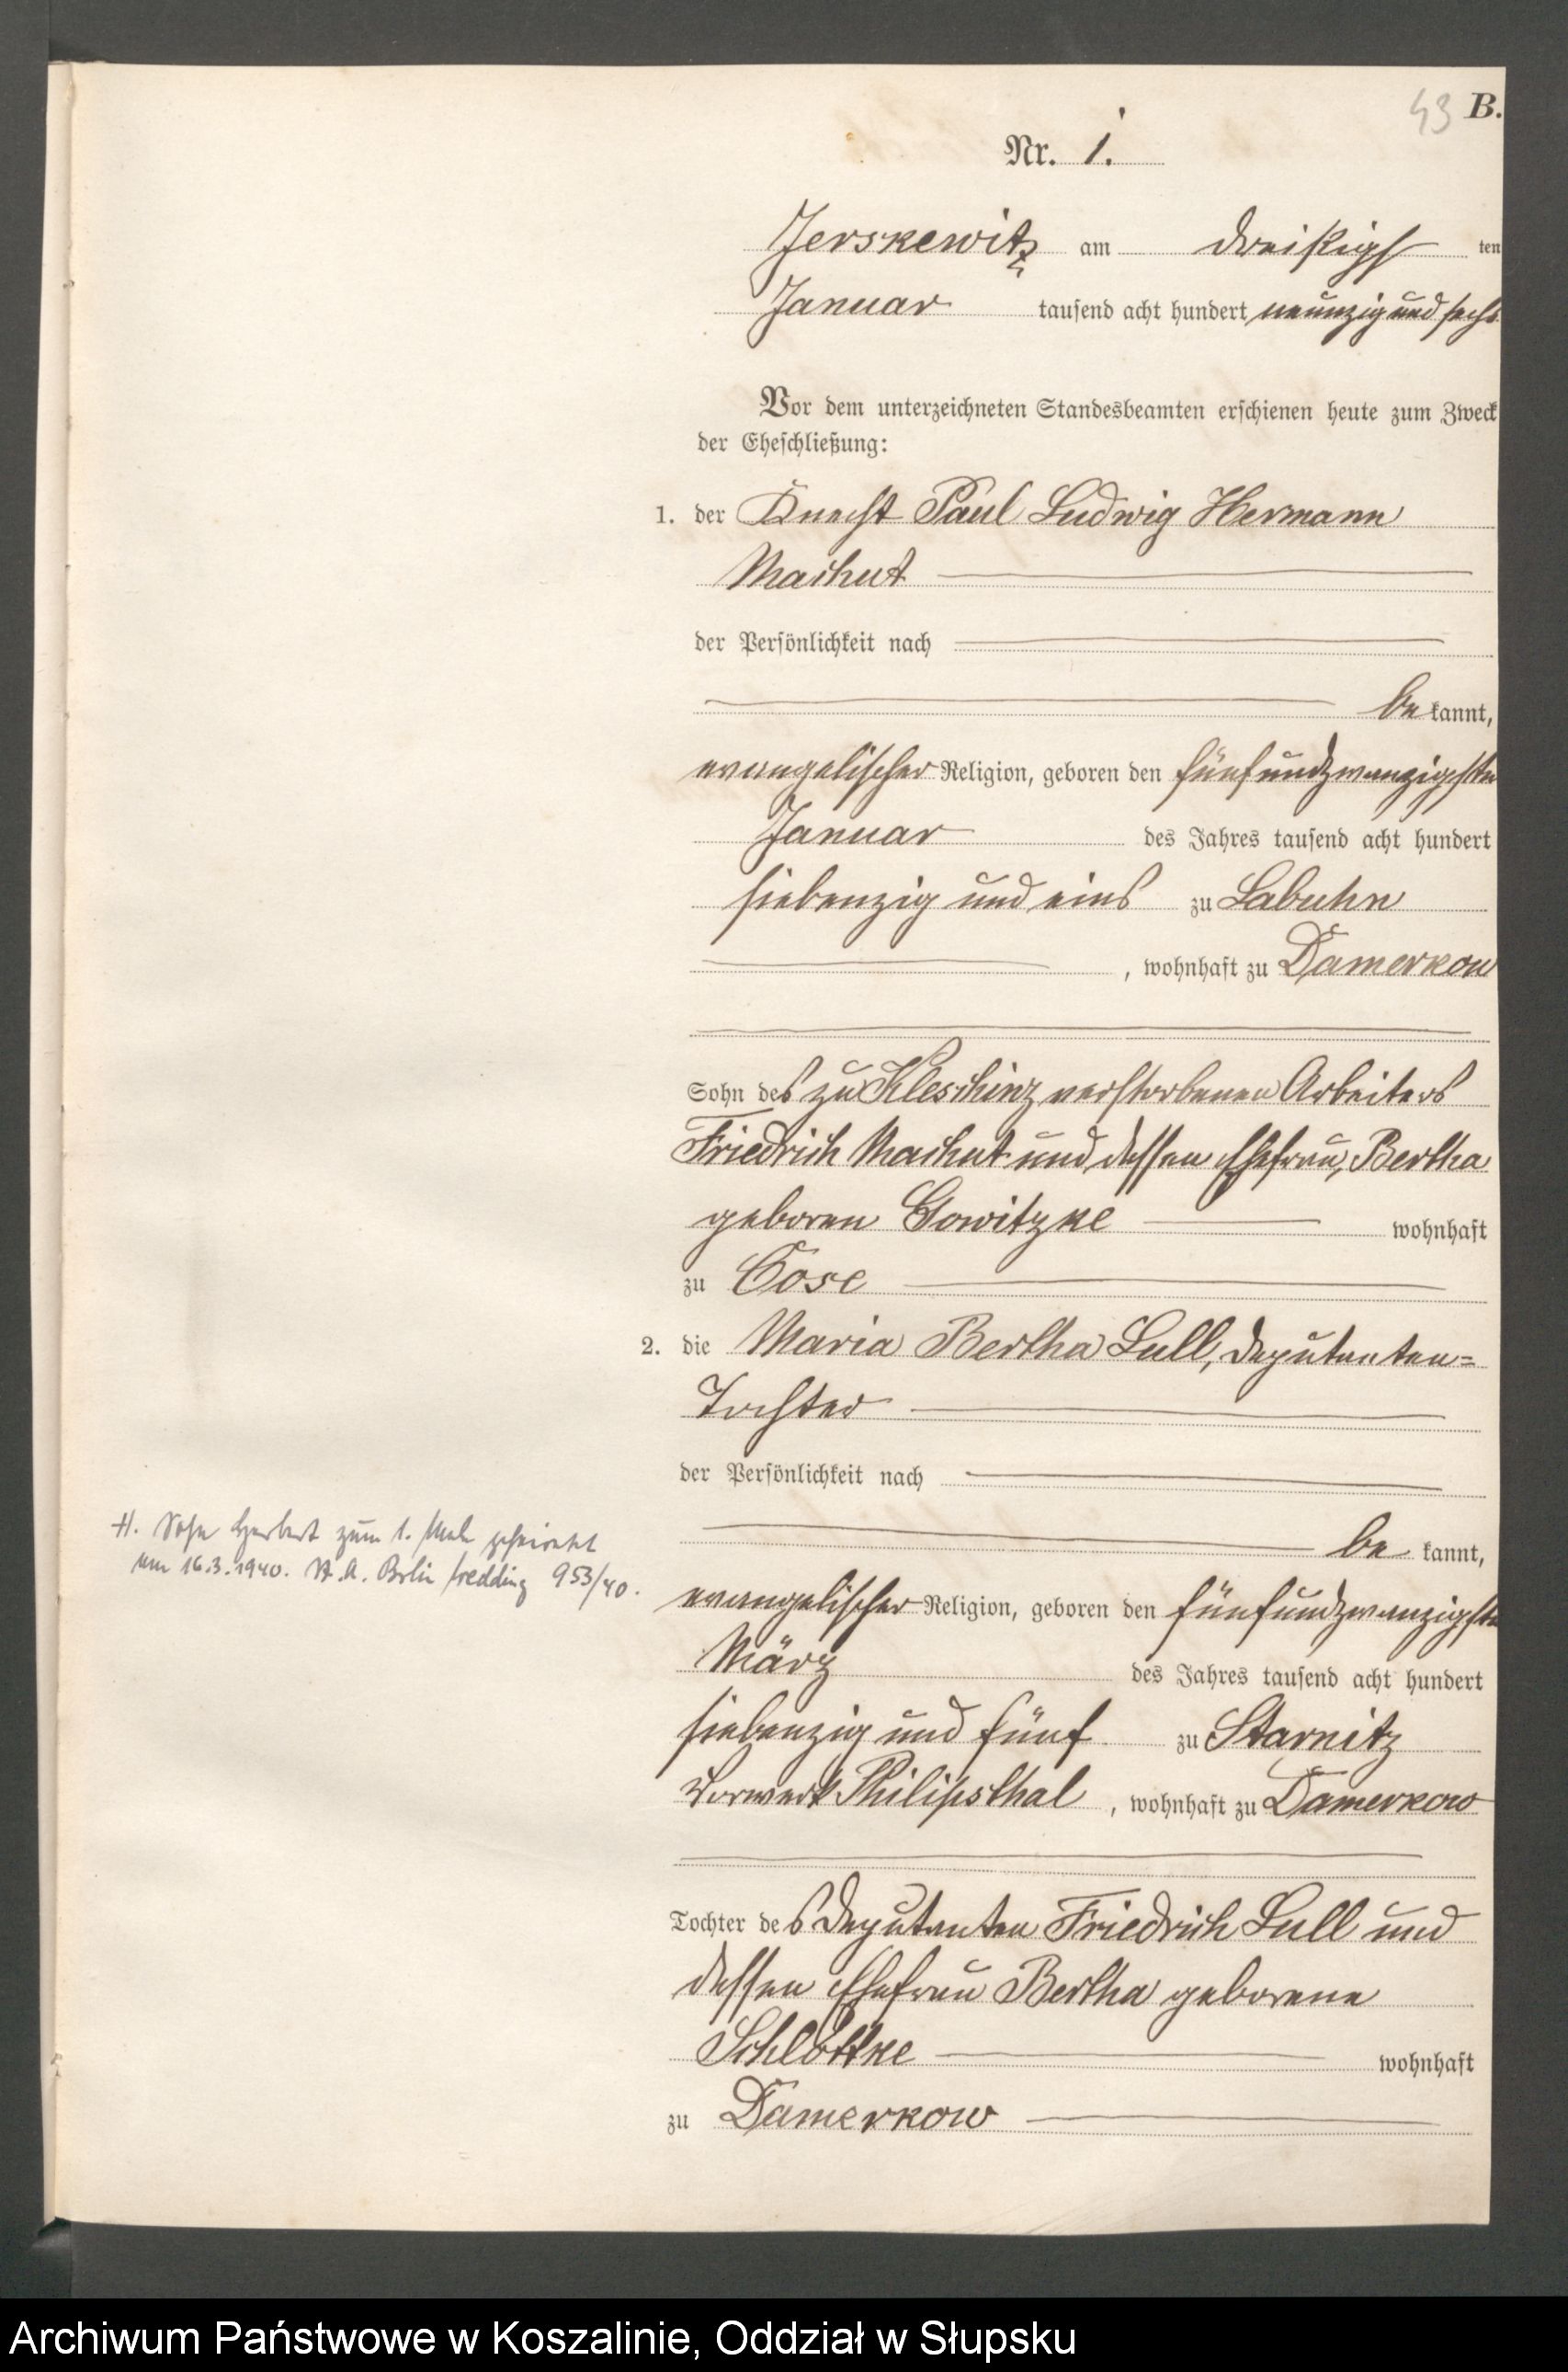 43 B.
Nr. 1.
Jerskewitz am dreißigsten
Januar tausend acht hundert neunzig und sechs
Vor dem unterzeichneten Standesbeamten erschienen heute zum Zweck
der Eheschließung:
1. der Knecht Paul Ludwig Hermann
Machut
der Persönlichkeit nach
bekannt,
evangelischer Religion, geboren den fünfundzwanzigsten
Januar des Jahres tausend acht hundert
siebenzig und eins zu Labuhn
, wohnhaft zu Damerkow
Sohn des zu Kleschinz verstorbenen Arbeiters
Friedrich Machut und dessen Ehefrau, Bertha
geboren Gowitzke wohnhaft
zu Cose
2. die Maria Bertha Lull, Deputanten=
Tochter
der Persönlichkeit nach
bekannt,
H. Sohn Herbert zum 1. Male geheiratet
am 16.3.1940. St. A. Berlin Wedding 953/40.
evangelischer Religion, geboren den fünfundzwanzigsten
März des Jahres tausend acht hundert
siebenzig und fünf zu Starnitz
Vorwerk Philipsthal, wohnhaft zu Damerkow
Tochter des Deputanten Friedrich Lull und
dessen Ehefrau Bertha geborene
Schlottke wohnhaft
zu Damerkow
Archiwum Państwowe w Koszalinie, Oddział w Słupsku